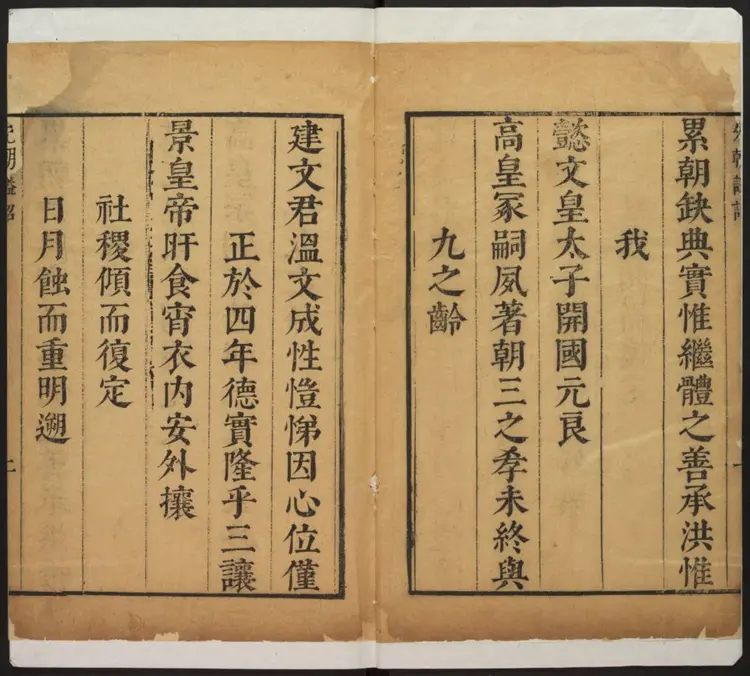 累朝缺典實惟繼體之善承洪惟
我
懿文皇太子開國元良
高皇冢嗣夙著朝三之孝未終與
九之齡
建文君溫文成性愷悌因心位僅
正於四年德實隆乎三讓
景皇帝旰食宵衣內安外攘
社稷傾而復定
日月蝕而重明遡